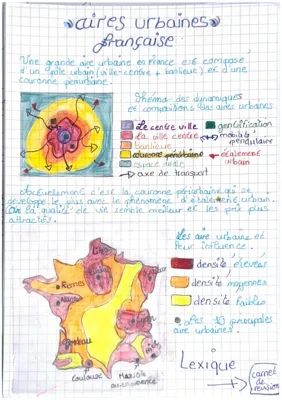 aires urbaines
française
Une grande aire urbaine en France est composé
d'un pôle urbain (ville-centre + banlieue) et d'une
couronne périurbaine.
Shéma des dynamiques
et comparaisons des aires urbaines
Le centre ville
la ville centre
banlieue
couronne périurbaine
espace rural
→ axe de transport
gentrification
mobilité
pendulaire
étalement
urbain
Actuellement c'est la couronne périurbaine qui se
développe le plus avec le phénomène d'étalement urbain.
la qualité de vie semble meilleur et les prix plus
attractifs.
Les aire urbaine et
leur influence.
densité élevées
densité moyennes
densité faibles
Les 10 principales
aire urbaines.
Rennes
Nantes
Bordeau
Toulouse
Marseille
Lexique
carnet
de
révision